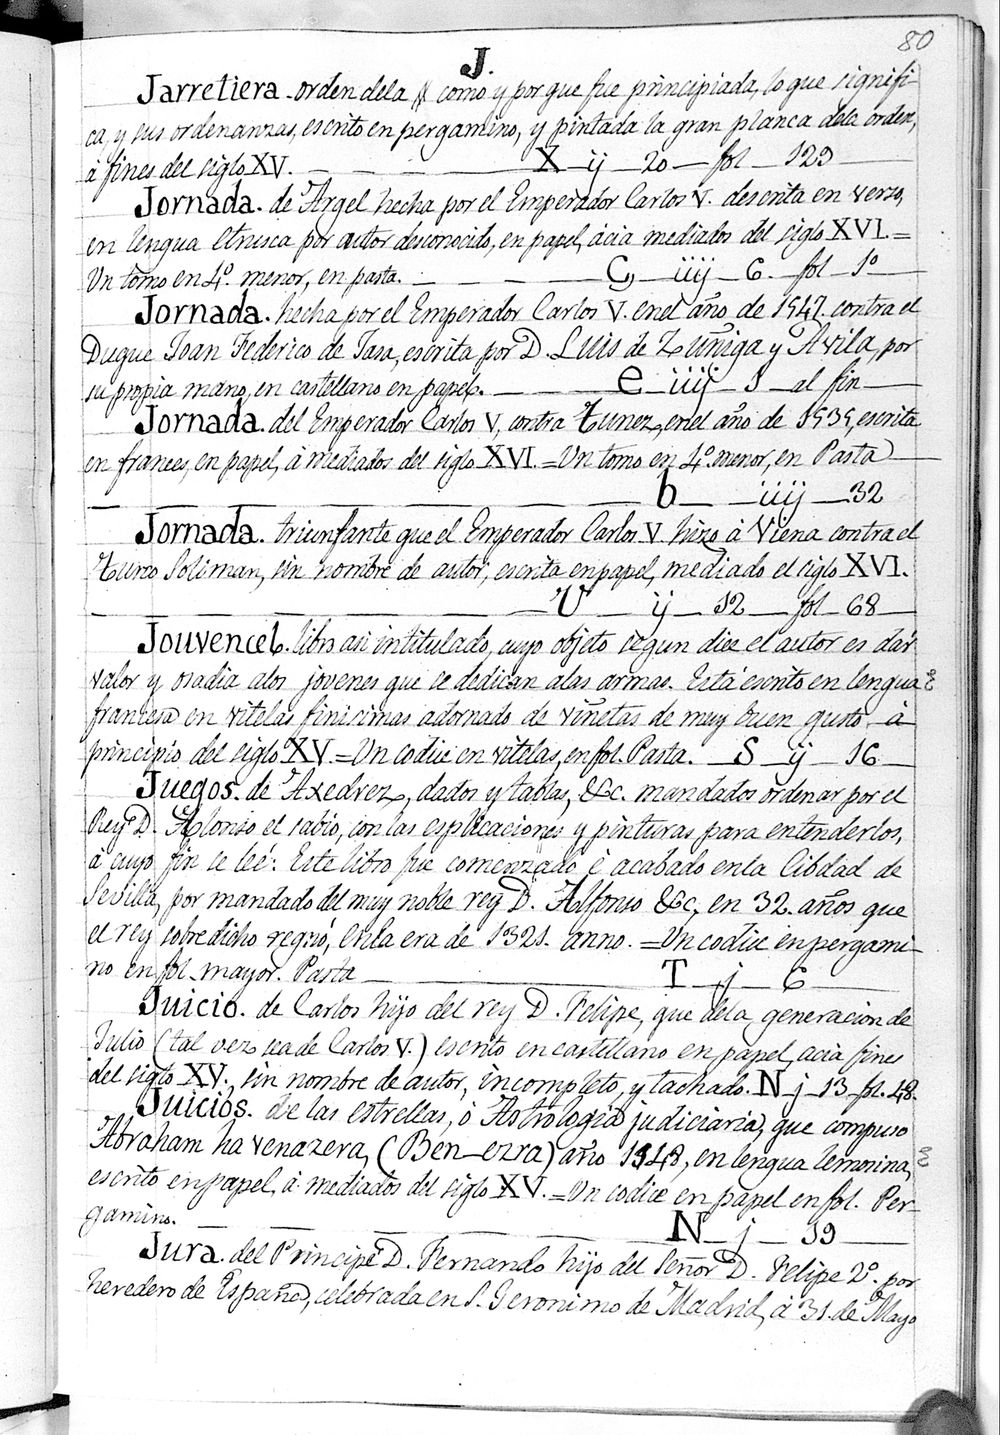 80
J.
Jarretiera - orden dela // como y por que fue principiada, lo que signifi-
ca, y sus ordenanzas, escrito en pergamino, y pintada la gran planca dela orden,
á fines del siglo XV. X - ij - 20 - fol - 129
Jornada. de Argel hecha por el Emperador Carlos V. descrita en verso,
en lengua Etrusca por autor desconocido, en papel, ácia mediados del siglo XVI. =
Un tomo en 4º. menor, en pasta. - Ç - iiij - 6. - fol - 1º
Jornada. hecha por el Emperador Carlos V. en el año de 1547. contra el
Duque Joan Federico de Sasa, escrita por D. Luis de Zuñiga y Avila, por
su propia mano, en castellano en papel. - e - iiij - 1 - al fin
Jornada. del Emperador Carlos V, contra Tunez, en el año de 1535, escrita
en frances, en papel, á mediados del siglo XVI. = Un tomo en 4º. menor, en Pasta
b - iiij - 32
Jornada. triunfante que el Emperador Carlos V. hizo á Viena contra el
Turco Soliman, sin nombre de autor, escrita en papel, mediado el siglo XVI.
V - ij - 12 - fol - 68
Jouvencel. libro asi intitulado, cuyo objeto segun dice el autor es dár
valor y osadia alos jovenes que se dedican alas armas. Está escrito en lengua
francesa en vitelas finicimas adornado de viñetas de muy buen gusto á
principio del siglo XV. = Un codice en vitelas, en fol. Pasta. S - ij - 16
Juegos. de Axedrez, dados y tablas, &c. mandados ordenar por el
Rey D. Alonso el sabio, con las esplicaciones y pinturas para entenderlos,
á cuyo fin se leé: Este libro fue comenzado é acabado enla Cibdad de
Sevilla, por mandado del muy noble rey D. Alfonso &c, en 32. años que
el rey sobredicho regnó, enla era de 1321. anno. = Un codice en pergami-
no en fol. mayor. Pasta T - j - 6
Juicio. de Carlos hijo del rey D. Felipe, que dela generacion de
Julio (tal vez sea de Carlos V.) escrito en castellano en papel, acia fines
del siglo XV, sin nombre de autor, incompleto, y tachado. N - j - 13 - fol. 48.
Juicios. de las estrellas, ó Astrologia judiciaria, que compuso
Abraham ha venazera, (Ben-ezra) año 1348, en lengua lemosina,
escrito en papel, á mediados del siglo XV. = Un codice en papel en fol. Per-
gamino. - N - j - 19
Jura. del Principe D. Fernando hijo del Señor D. Felipe 2º. por
heredero de España, celebrada en S. Geronimo de Madrid, á 31. de Mayo